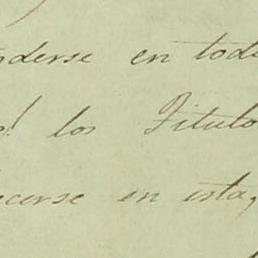 nderse en tod
los Titulo
cerse en esta,